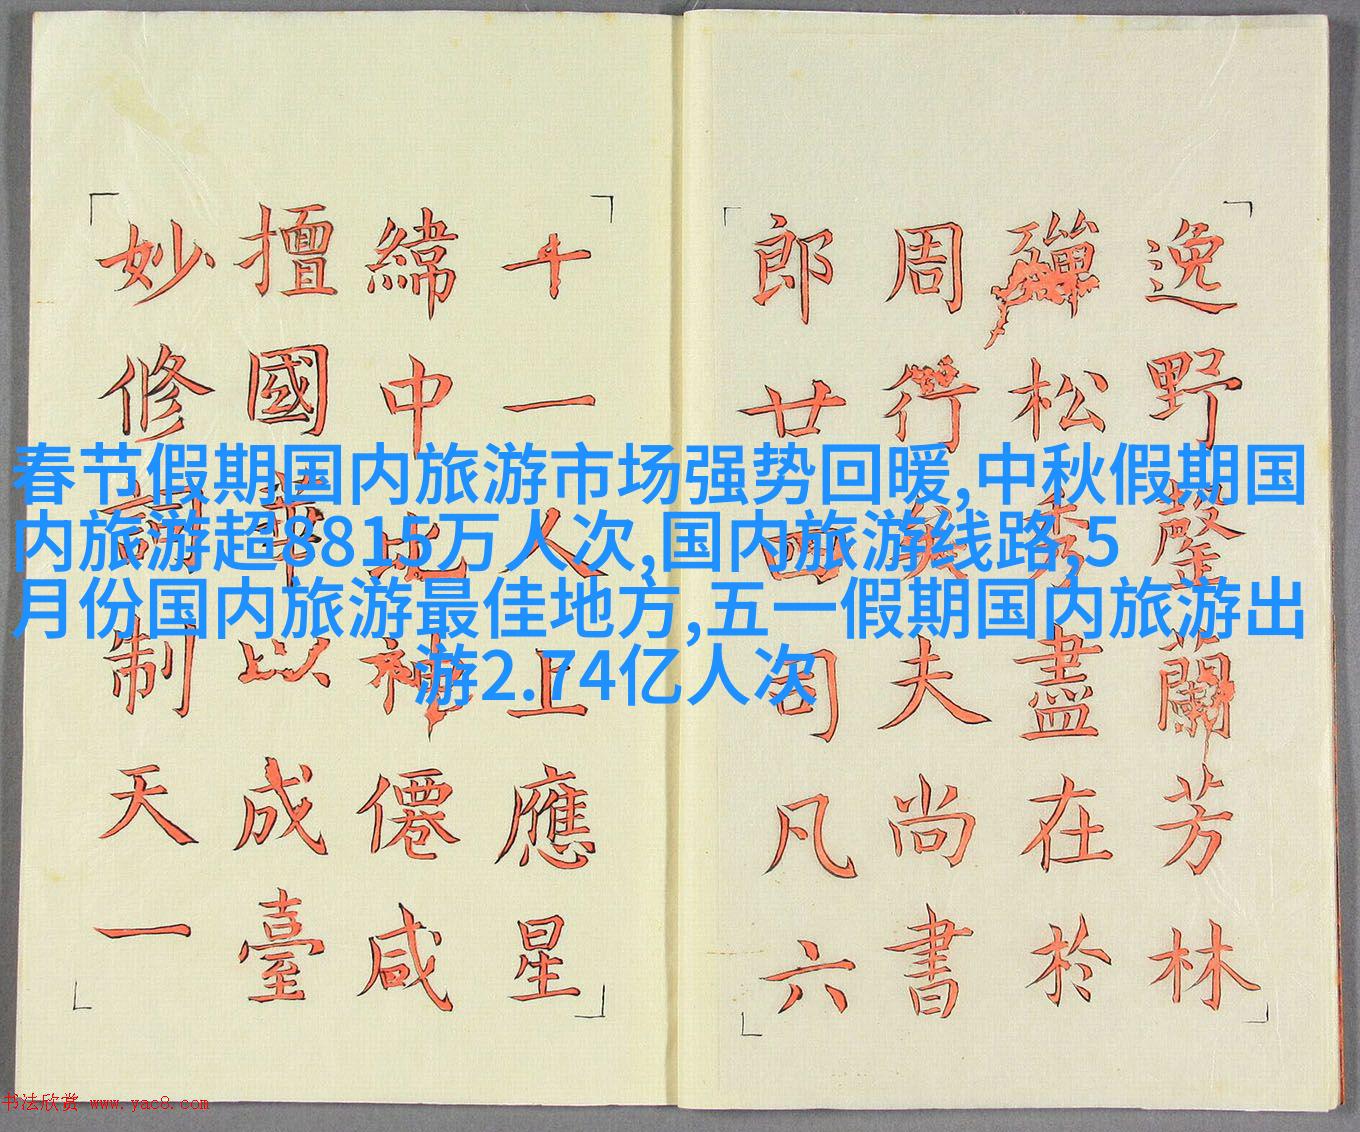 春节假期国内旅游市场强势回暖,中秋假期国
内旅游超8815万人次,国内旅游线路,5
月份国内旅游最佳地方,五一假期国内旅游出
游2.74亿人次
逸野罄蘭芳林
殫松秀盡在於
周行矣夫尚書
郎廿四司凡六
十一人上應星
緯中比神僊咸
擅國華以成臺
妙修詞制天一
书法欣赏 www.yac8.com